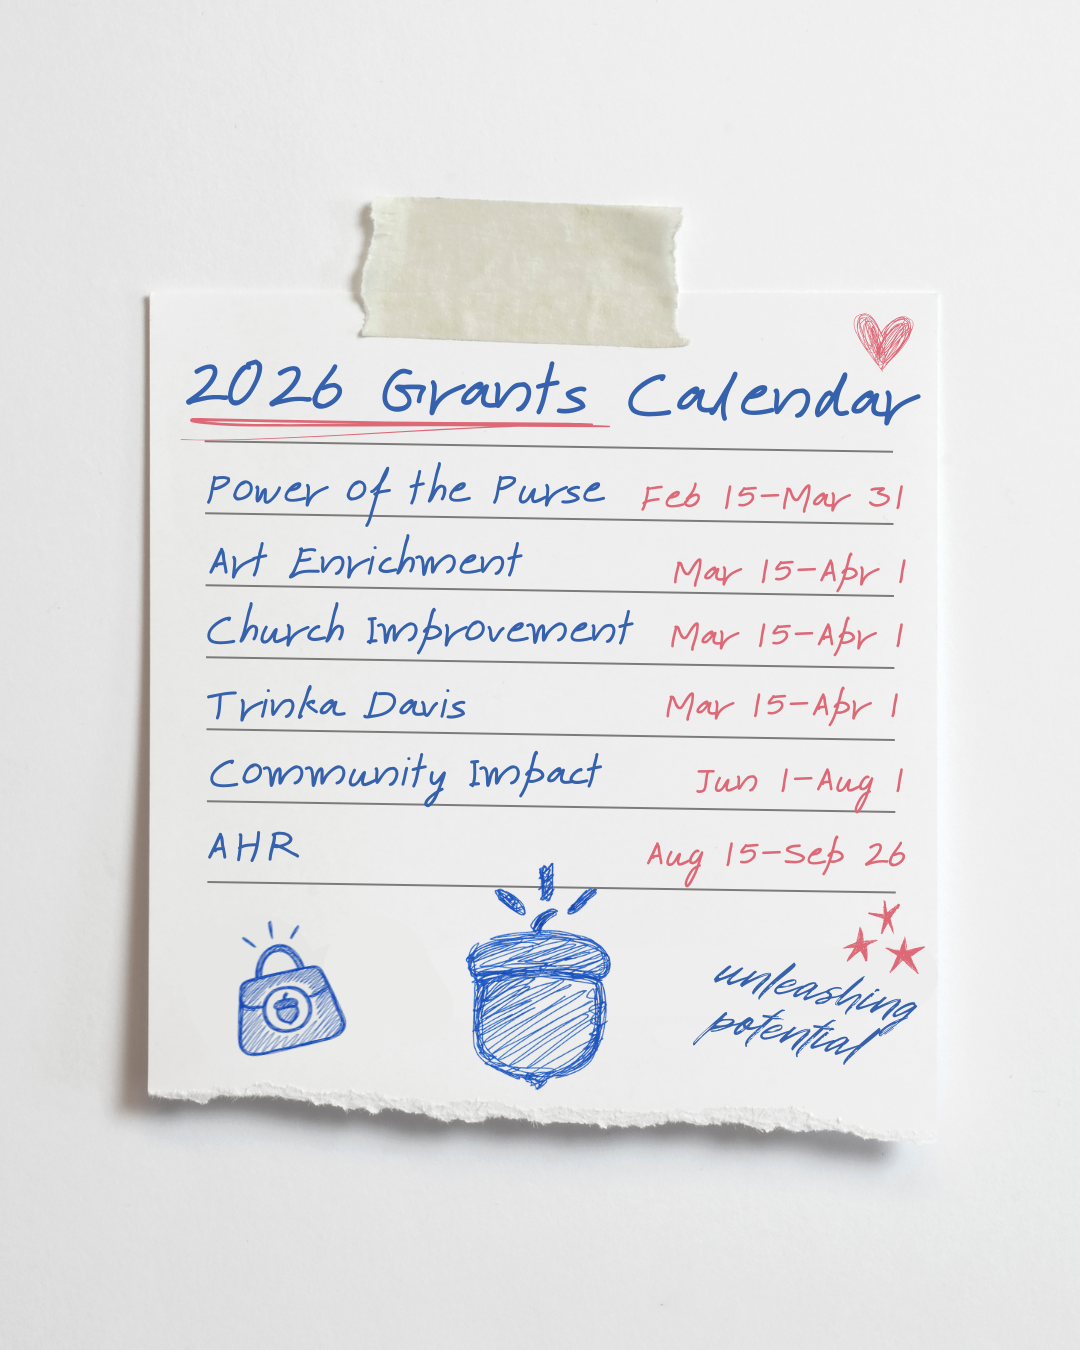 2026 Grants Calendar
Power of the Purse Feb 15-Mar 31
Art Enrichment Mar 15-Apr 1
Church Improvement Mar 15-Apr 1
Trinka Davis Mar 15-Apr 1
Community Impact Jun 1-Aug 1
AHR Aug 15-Sep 26
unleashing
potential